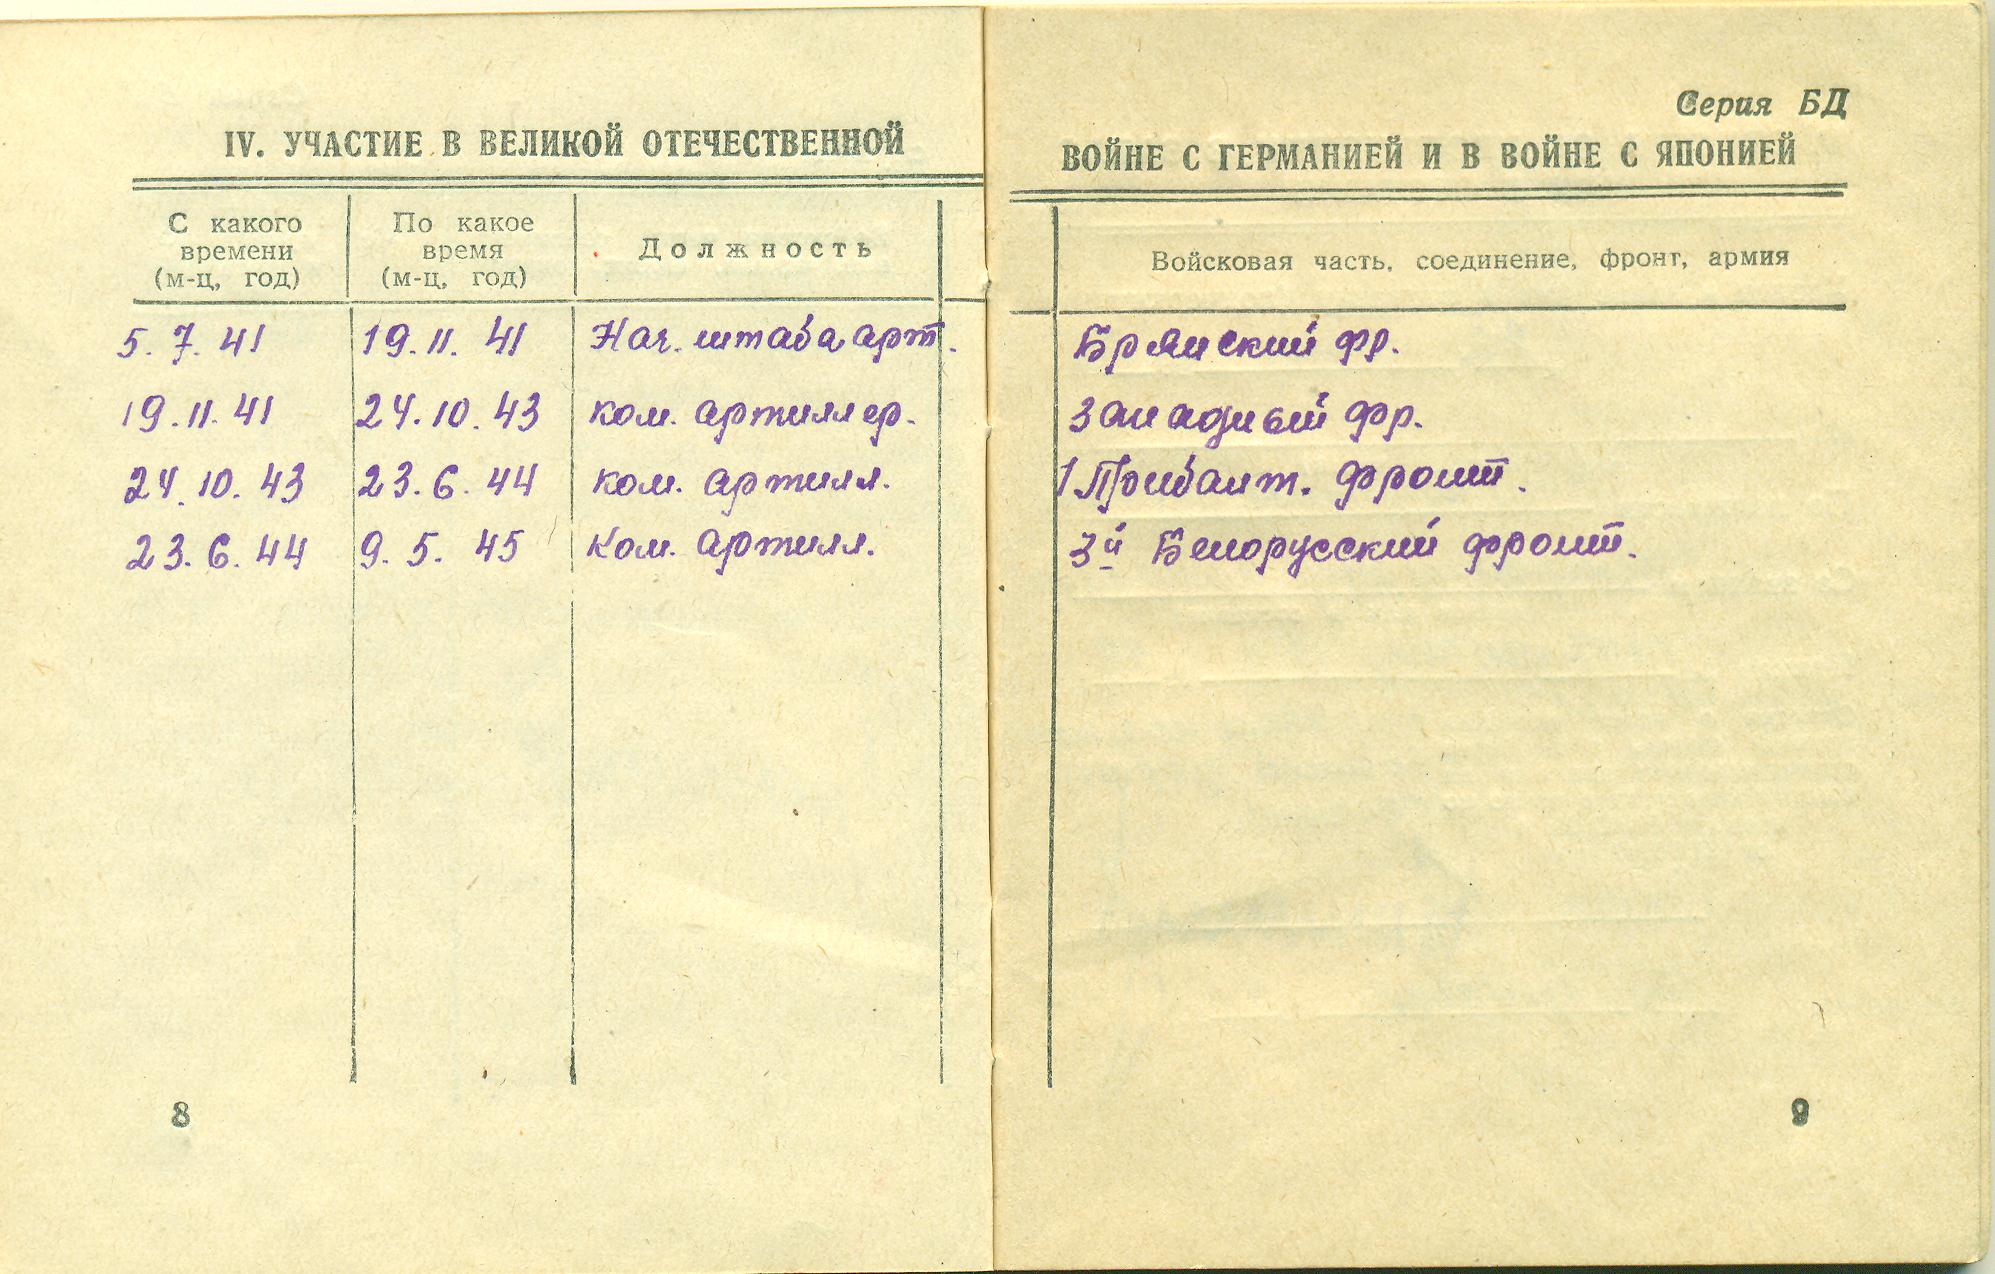 Серия БД
IV. УЧАСТИЕ В ВЕЛИКОЙ ОТЕЧЕСТВЕННОЙ ВОЙНЕ С ГЕРМАНИЕЙ И В ВОЙНЕ С ЯПОНИЕЙ
С какого времени (м-ц, год) По какое время (м-ц, год) Должность Войсковая часть, соединение, фронт, армия
5. 7. 41 19. 11. 41 Нач. штаба арт. Брянский фр.
19. 11. 41 24. 10. 43 ком. артиллер. Западный фр.
24. 10. 43 23. 6. 44 ком. артилл. 1 Прибалт. фронт.
23. 6. 44 9. 5. 45 Ком. артилл. 3й Белорусский фронт.
8 9